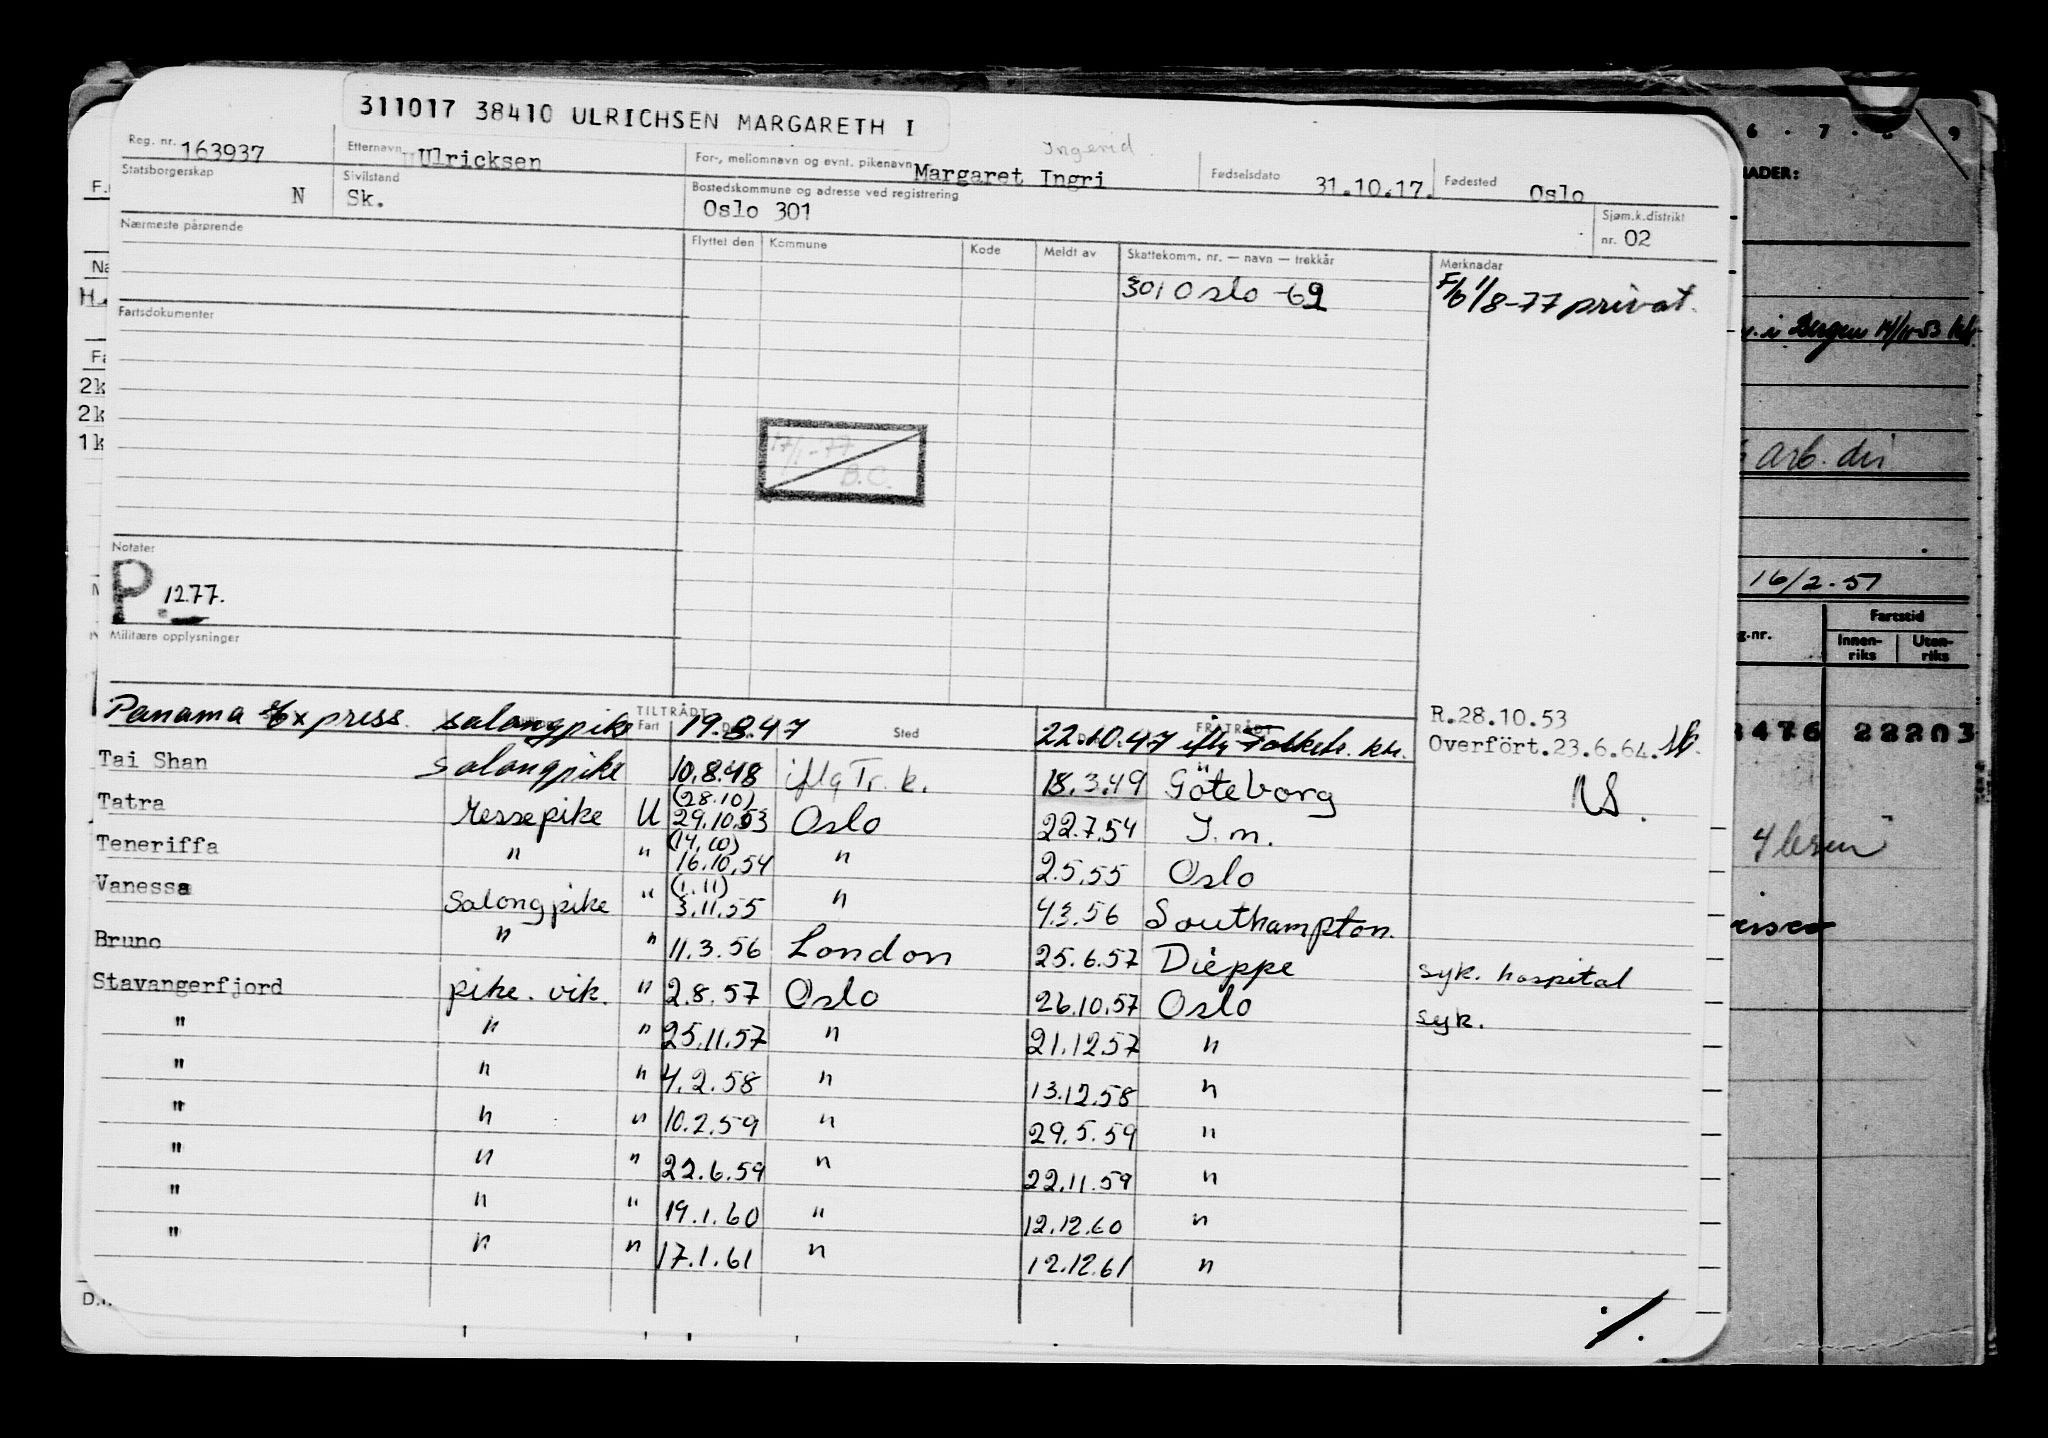 311017 38410 ULRICHSEN MARGARETH I
Reg. nr. 163937 Etternavn Ulricksen For-, mellomnavn og evnt. pikenavn Margaret Ingri Ingerid Fødselsdato 31.10.17. Fødested Oslo
Statsborgerskap N Sivilstand Sk. Bostedskommune og adresse ved registrering Oslo 301 Sjøm.k.distrikt nr. 02
Nærmeste pårørende Flyttet den Kommune Kode Meldt av Skattekomm. nr. — navn — trekkår Merknader
301 Oslo -69 1/8-77 privat.
Fartsdokumenter
17/1-77
B.C.
Notater
P. 12.77.
Militære opplysninger
TILTRÅDT FRATRÅDT
Fart Sted
R.28.10.53
Overført.23.6.64.
Panama Express. salongpike 19.8.47 22.10.47 iflg
Tai Shan Salongpike 10.8.48 iflg Tr. k. 18.3.49 Göteborg
Tatra Messepike U (28.10) 29.10.53 Oslo 22.7.54 I. m.
Teneriffa " " (14.10) 16.10.54 " 2.5.55 Oslo
Vanessa Salongpike " (1.11) 3.11.55 " 4.3.56 Southampton.
Bruno " " 11.3.56 London 25.6.57 Dieppe syk. hospital
Stavangerfjord pike. vik. " 2.8.57 Oslo 26.10.57 Oslo syk.
" " " 25.11.57 " 21.12.57 "
" " " 4.2.58 " 13.12.58 "
" " " 10.2.59 " 29.5.59 "
" " " 22.6.59 " 22.11.59 "
" " " 19.1.60 " 12.12.60 "
" " " 17.1.61 " 12.12.61 "
6 . 7 . 8 . 9
i Bergen 14/11-53
arb. dir
16/2-57
Fartstid
Innen-riks Uten-riks
22203
2k
2k
1k